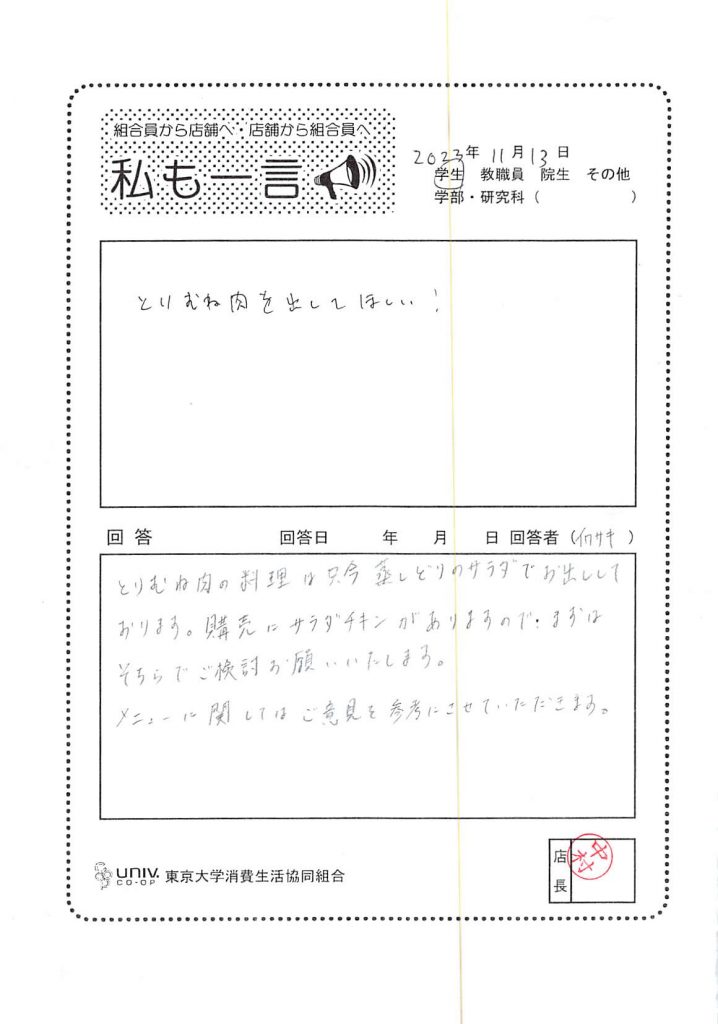 組合員から店舗へ・店舗から組合員へ
私も一言
2023年 11月 13日
学生 教職員 院生 その他
学部・研究科（ ）
とりむね肉を出してほしい！
回答 回答日 年 月 日 回答者（イワサキ）
とりむね肉の料理は只今蒸しどりのサラダでお出しして
おります。購売にサラダチキンがありますので、まずは
そちらでご検討お願いいたします。
メニューに関してはご意見を参考にさせていただきます。
店長
中村
UNIV.
CO-OP
東京大学消費生活協同組合